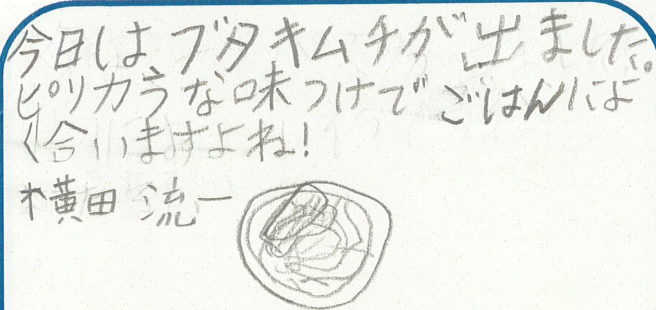 今日はブタキムチが出ました。
ピリカラな味つけでごはんによ
く合いますよね!
横田流一